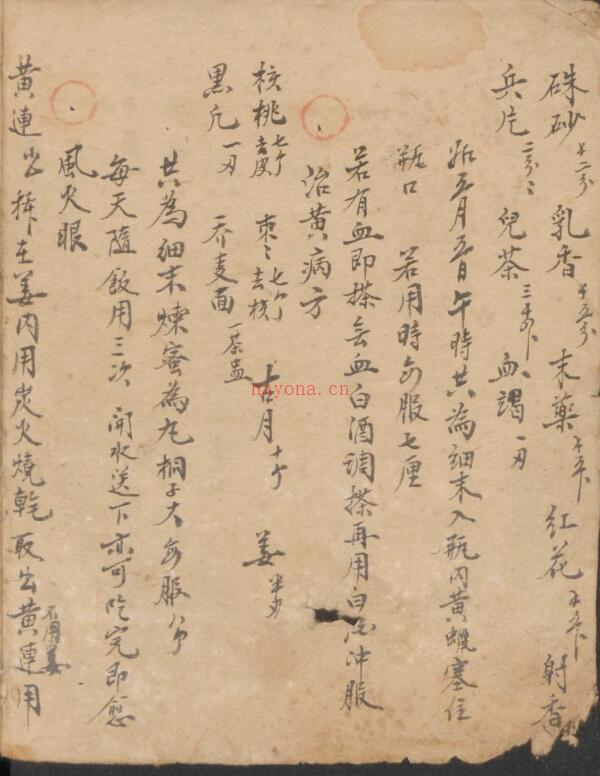 硃砂 一ㄔ二分 乳香 一ㄔ五分 末藥 一ㄔ五卜 紅花 一ㄔ五卜 射香
兵片 二分二 兒茶 二ㄔ四卜 血竭 一刃
於五月五日午時共為細末入瓶內黃蠟塞住
瓶口 若用時每服七厘
若有血即搽無血白酒調搽再用白酒沖服
治黃病方
核桃 七个 去皮 枣 七个 去核 十个 姜
黑凡 一刃 乔麦面 一茶盅
共為細末煉蜜為丸桐子大每服
每天隨飯用三次 開水送下亦可吃完即愈
風火眼
黃連 在姜內用炭火燒乾取出黃連用
不用姜
hayona.cn